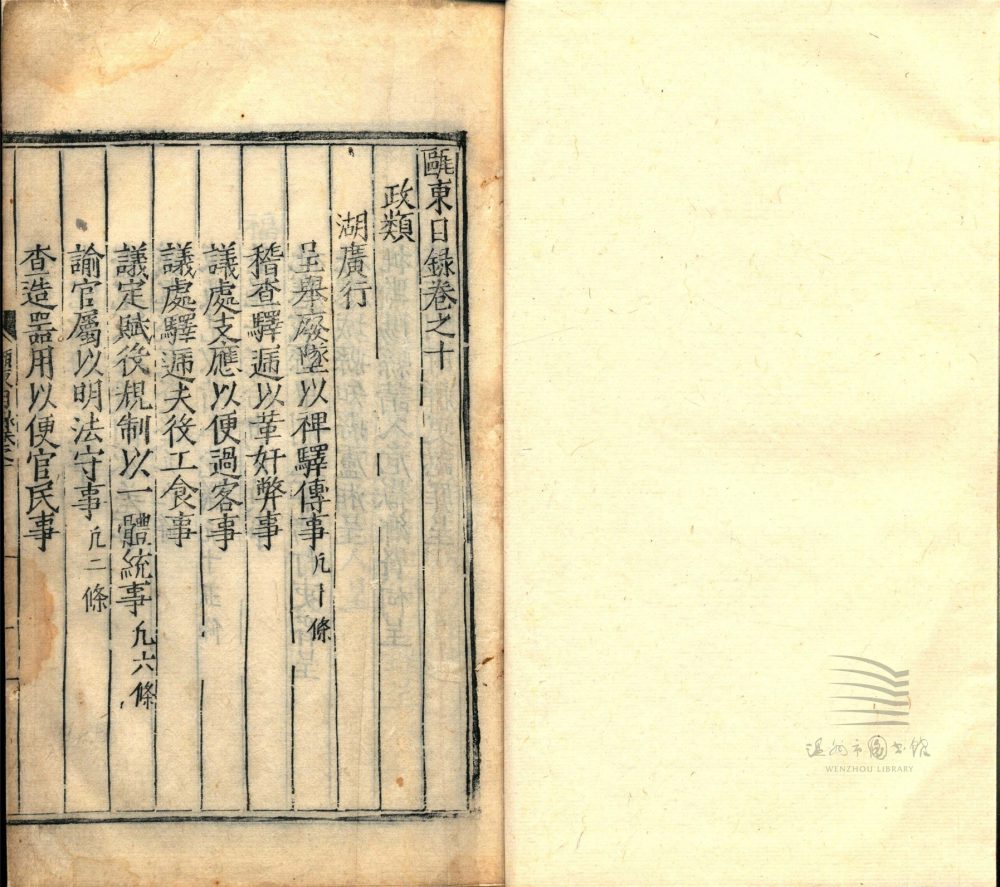 甌東日録卷之十
政類
湖廣行
呈舉廢墜以裨驛傳事凢十條
稽查驛逓以革奸弊事
議處支應以便過客事
議處驛逓夫役工食事
議定賦役規制以一體統事凢六條
諭官屬以明法守事凢二條
查造器用以便官民事
温州市图书馆
WENZHOU LIBRARY